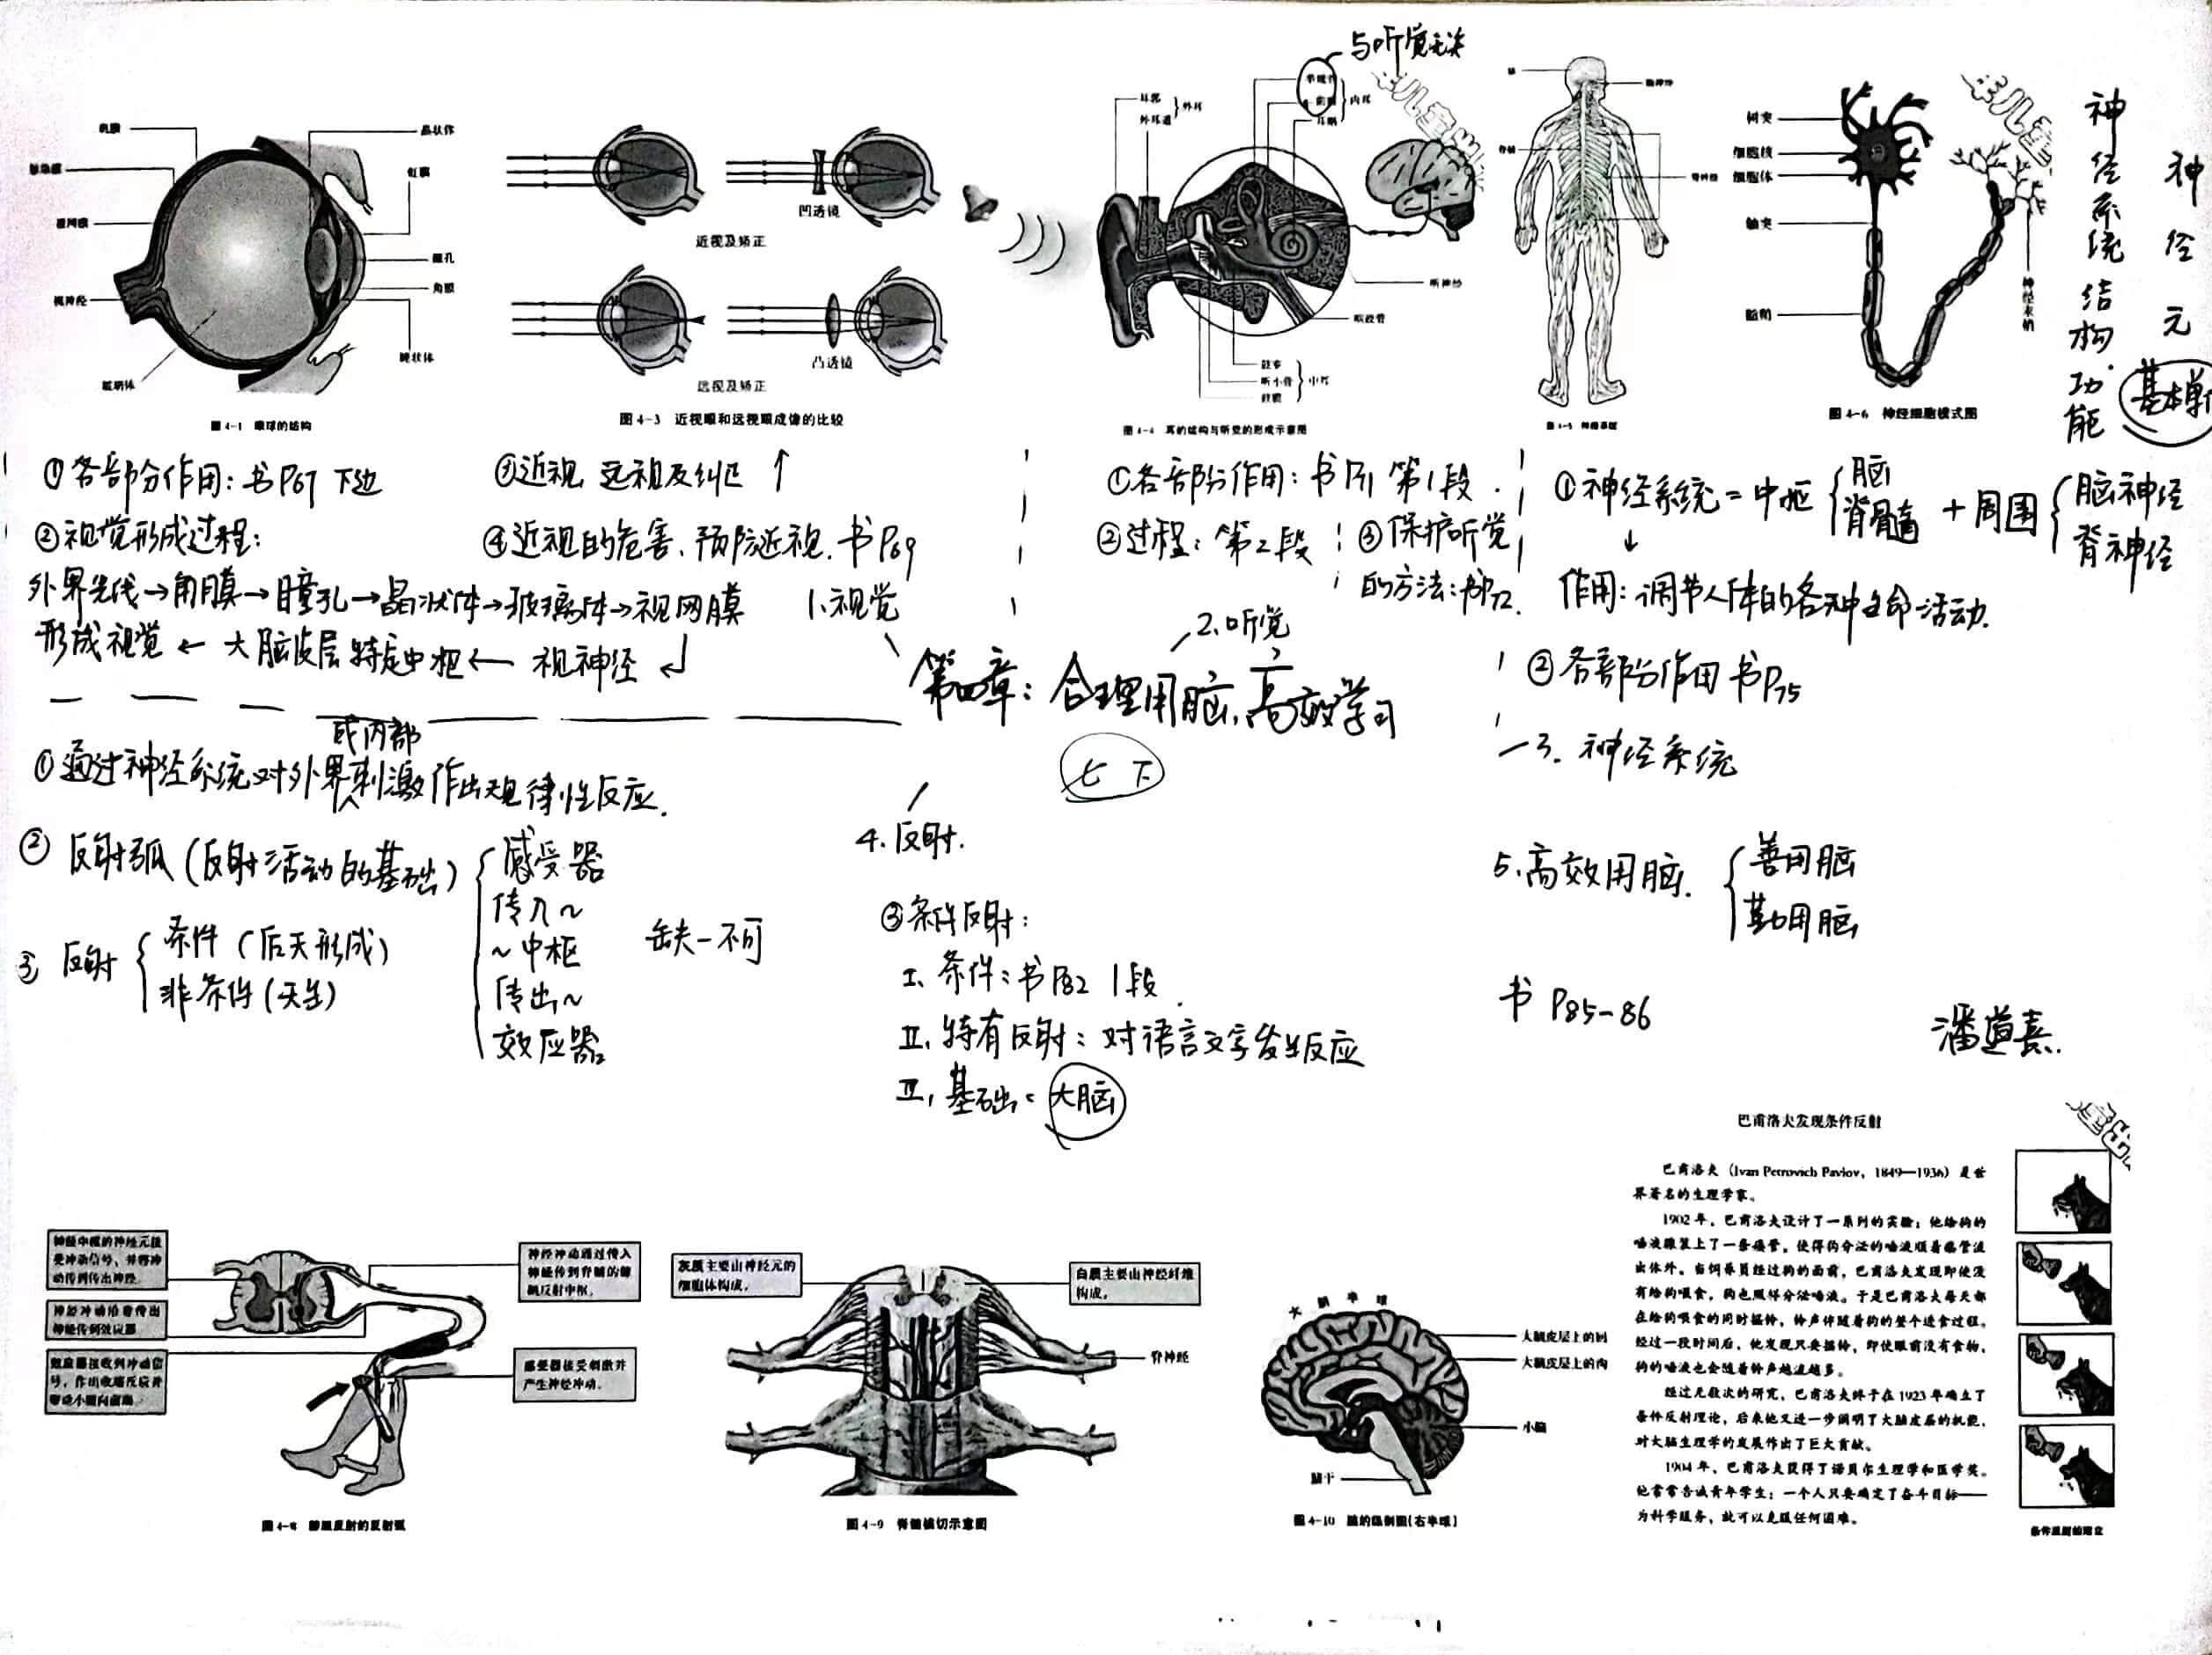 巩膜
脉络膜
视网膜
视神经
玻璃体
晶状体
虹膜
瞳孔
角膜
睫状体
图 4-1 眼球的结构
凹透镜
近视及矫正
凸透镜
远视及矫正
图 4-3 近视眼和远视眼成像的比较
与听觉无关
耳郭
外耳道
外耳
半规管
前庭
耳蜗
内耳
听神经
咽鼓管
鼓室
听小骨
鼓膜
中耳
图 4-4 耳的结构与听觉的形成示意图
脑
脑神经
脊髓
脊神经
图 4-5 神经系统
树突
细胞核
细胞体
轴突
髓鞘
神经末梢
图 4-6 神经细胞模式图
神经系统结构.功能
神经元
①各部分作用:书P67 下边
②视觉形成过程:
外界光线→角膜→瞳孔→晶状体→玻璃体→视网膜
形成视觉 ← 大脑皮层特定中枢 ← 视神经 ↲
③近视 远视及纠正 ↑
④近视的危害、预防近视. 书P69
1.视觉
①各部分作用:书P71 第1段.
②过程:第2段
③保护听觉
的方法:书P72.
2.听觉
①神经系统=中枢{脑 脊髓 + 周围{脑神经 脊神经
↓
作用:调节人体的各种生命活动.
②各部分作用 书P75
3. 神经系统
第四章:合理用脑,高效学习
七下
或内部
①通过神经系统对外界刺激作出规律性反应.
②反射弧(反射活动的基础)
感受器
传入~
~中枢
传出~
效应器
缺一不可
③反射
条件(后天形成)
非条件(天生)
4.反射.
③条件反射:
I. 条件:书P82 1段.
II. 特有反射:对语言文字发生反应
II. 基础:大脑
5.高效用脑.
善用脑
勤用脑
书 P85-86
潘道熹.
神经中枢的神经元接
受冲动信号,并将冲
动传到传出神经.
神经冲动沿着传出
神经传到效应器
效应器接收到冲动信
号,作出收缩反应并
神经冲动通过传入
神经传到脊髓的膝
跳反射中枢.
感受器接受刺激并
产生神经冲动.
图 4-8 膝跳反射的反射弧
灰质主要由神经元的
细胞体构成。
白质主要由神经纤维
构成。
脊神经
图 4-9 脊髓横切示意图
大脑半球
大脑皮层上的回
大脑皮层上的沟
小脑
脑干
图 4-10 脑的纵剖图(右半球)
巴甫洛夫发现条件反射
巴甫洛夫(Ivan Petrovich Pavlov, 1849—1936)是世
界著名的生理学家。
1902 年,巴甫洛夫设计了一系列的实验:他给狗的
唾液腺装上了一条瘘管,使得狗分泌的唾液顺着瘘管流
出体外。当饲养员经过狗的面前,巴甫洛夫发现即使没
有给狗喂食,狗也照样分泌唾液。于是巴甫洛夫每天都
在给狗喂食的同时摇铃,铃声伴随着狗的整个进食过程。
经过一段时间后,他发现只要摇铃,即使眼前没有食物,
狗的唾液也会随着铃声越流越多。
经过无数次的研究,巴甫洛夫终于在 1923 年确立了
条件反射理论,后来他又进一步阐明了大脑皮层的机能,
对大脑生理学的发展作出了巨大贡献。
1904 年,巴甫洛夫获得了诺贝尔生理学和医学奖。
他常常告诫青年学生:一个人只要确定了奋斗目标——
为科学服务,就可以克服任何困难。
条件反射的建立